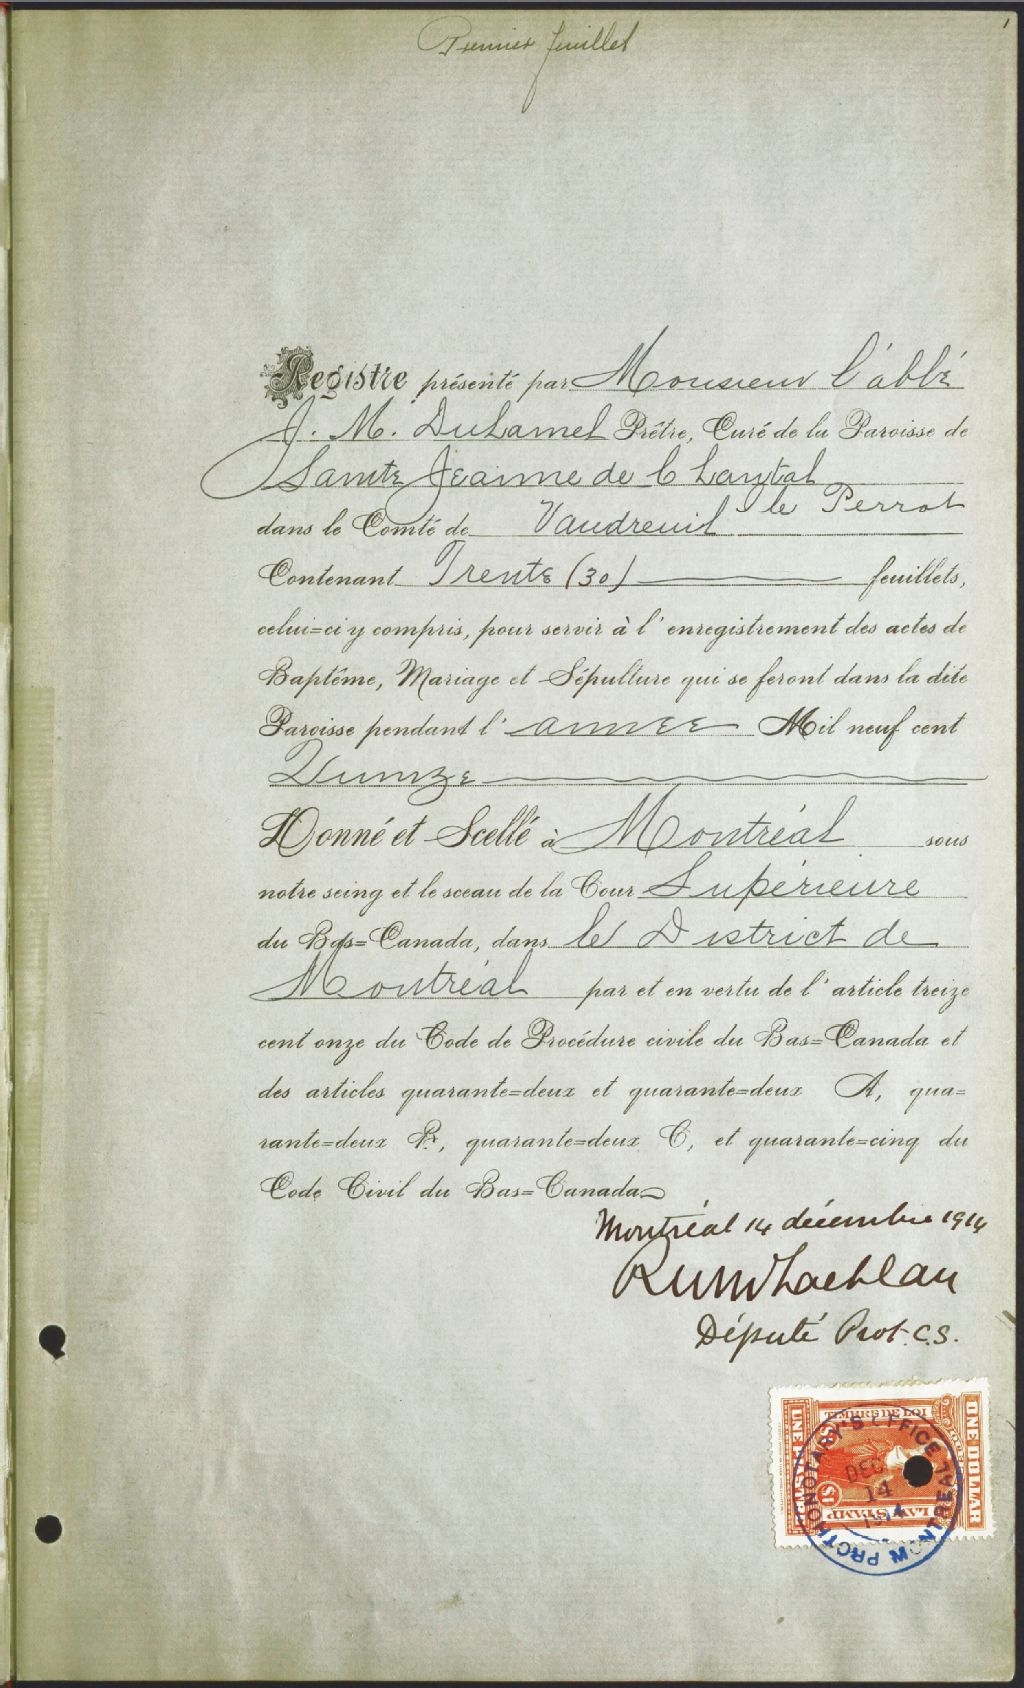 Premier feuillet
1
Registre présenté par Monsieur l'abbé
J. M. Duhamel Prêtre, Curé de la Paroisse de
Sainte Jeanne de Chantal
Ile Perrot
dans le Comté de Vaudreuil
Contenant Trente (30) feuillets,
celui=ci y compris, pour servir à l'enregistrement des actes de
Baptême, Mariage et Sépulture qui se feront dans la dite
Paroisse pendant l'année Mil neuf cent
Quinze
Donné et Scellé à Montréal sous
notre seing et le sceau de la Cour Supérieure
du Bas=Canada, dans le District de
Montréal par et en vertu de l'article treize
cent onze du Code de Procédure civile du Bas=Canada et
des articles quarante=deux et quarante=deux A, qua=
rante=deux B, quarante=deux C, et quarante=cinq du
Code Civil du Bas=Canada
Montréal 14 décembre 1914
Député Prot. C.S.
TIMBRE DE LOI
ONE DOLLAR
UNE PIASTRE
$1
LAW STAMP
PROTHONOTARY'S OFFICE MONTREAL
DEC
14
1914